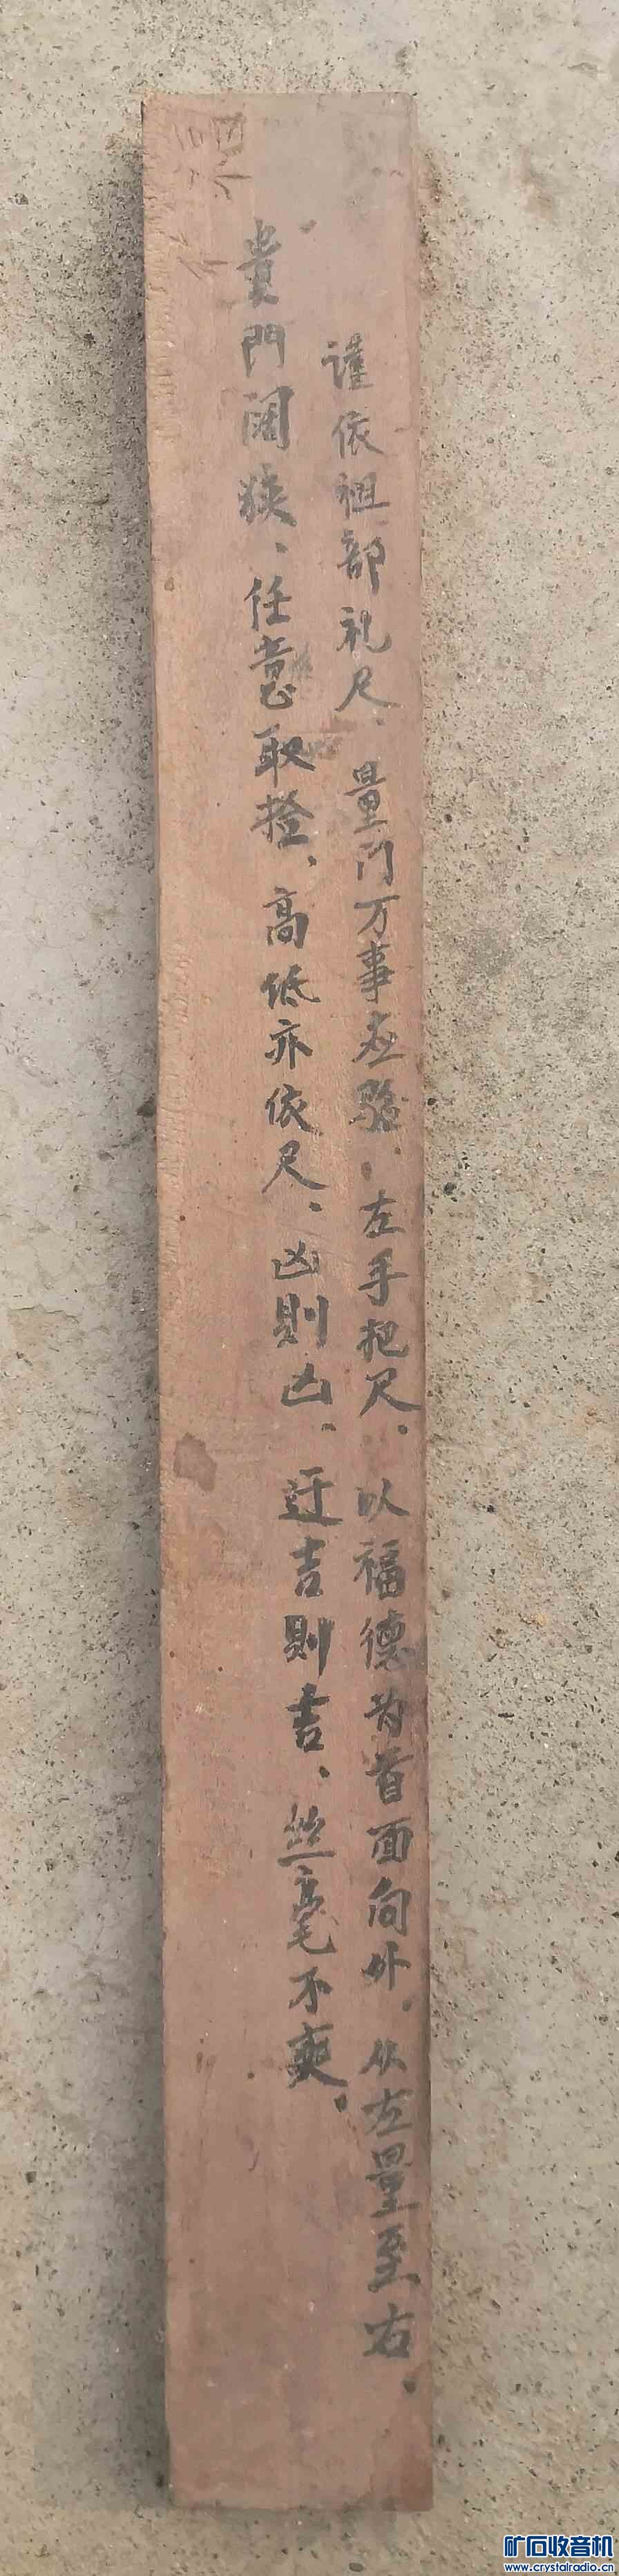 谨依祖部礼尺、量门万事应驗、左手把尺、以福德为首面向外、从左量至右、
贵門阔狭、任意取捨、高低亦依尺、凶則凶、迂吉則吉、丝毫不爽、
矿石收音机
www.crystalradio.cn